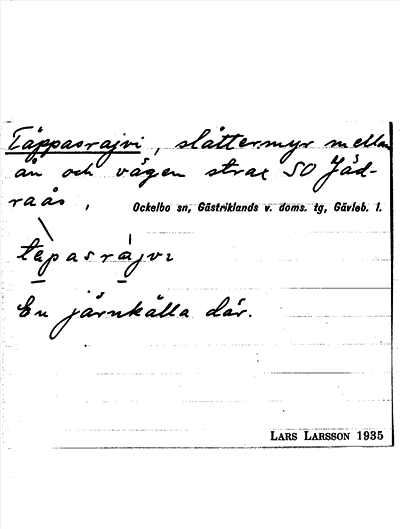 Täppasrajvi, slåttermyr mellan
ån och vägen strax SO Jäd-
raås, Ockelbo sn, Gästriklands v. doms. tg, Gävleb. l.
täpasràjvı
En järnkälla där.
LARS LARSSON 1935